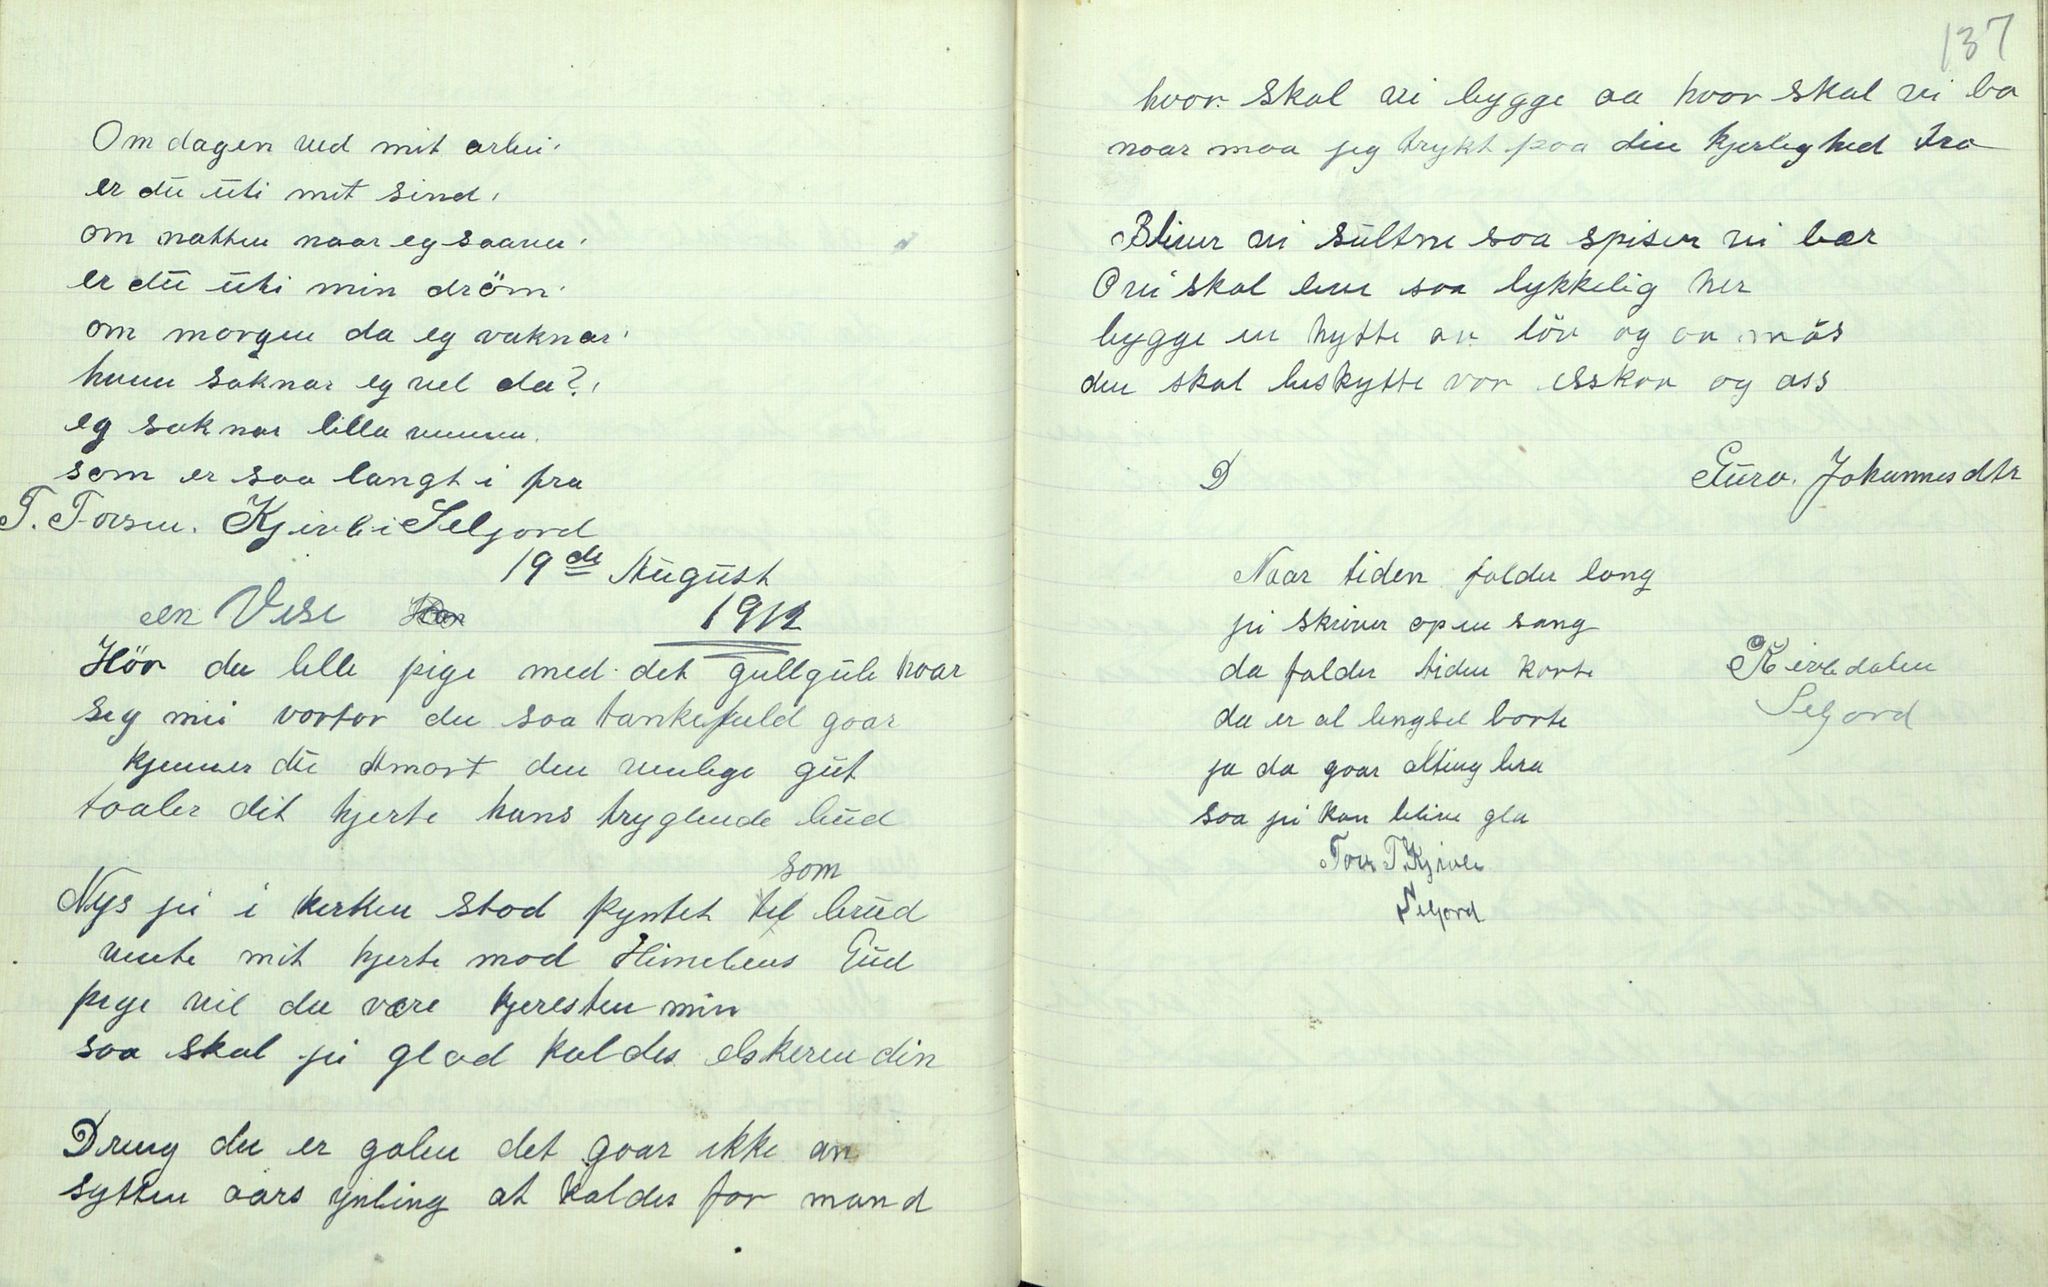 Om dagen ved mit arbei'
er du uti mit sind,
om natten naar eg saaven'
er du uti min dröm'
om morgen da eg vaknar'
hvem saknar eg vel da?,
eg saknar lilla vennen.
som er saa langt i fra
T. Torsen. Kjivle i Seljord
19de August
en Vise 1912
Hör du lille pige med det gullgule haar
sig mei vorfor du saa tankefuld gaar
kjenner du Amort den venlige gut
taaler dit hjerte hans tryglende bud
Nys jei i kerken stod pyntet som brud
vente mit hjerte mod Himelens Gud
pige vil du være kjeresten min
saa skal jei glad kaldes elskeren din
Dreng du er galen det gaar ikke an
sytten aars ynling at kaldes for mand
137
hvor skal vi bygge aa hvor skal vi bo
naar maa jeg trykt paa din kjerlighed tro
Bliver vi sultne saa spiser vi bær
O vi skal leve saa lykkelig her
bygge en hytte av löv og av mos
den skal beskytte vor elskov og oss
D Guro. Johannesdtr
Naar tiden falder lang
jei skriver op en sang
da falder tiden korte
da er al lengsel borte
ja da gaar alting bra
saa jei kan blive gla
Tov T. Kjivle
Seljord
Kivledalen
Seljord